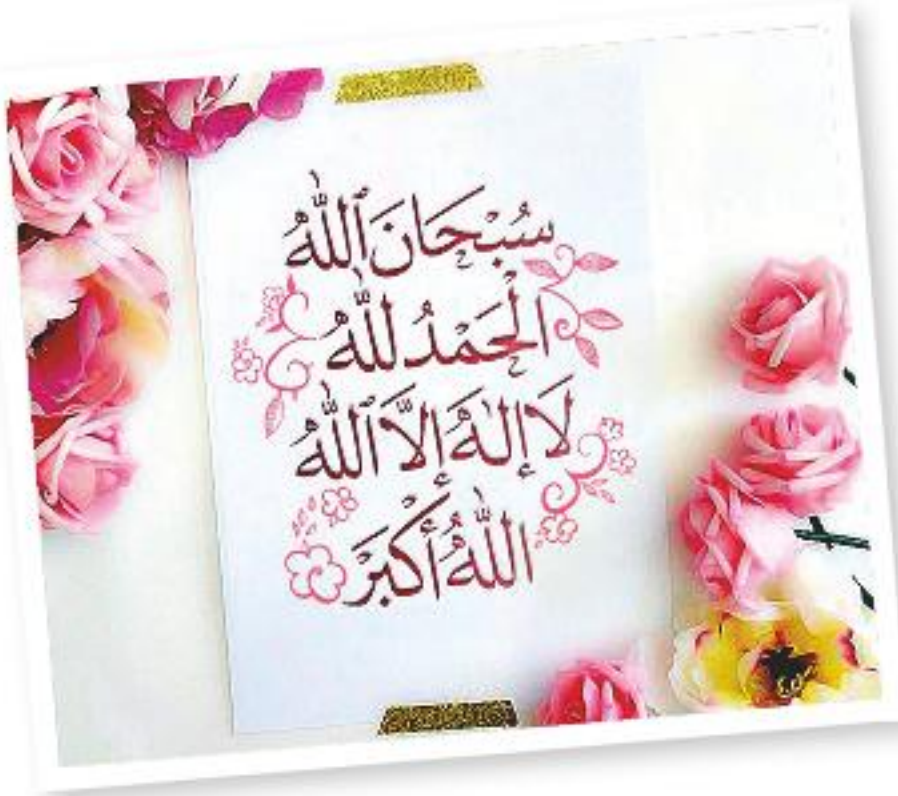 سُبْحَانَ ٱللّٰهُ
الْحَمْدُ لِلّٰهُ
لَا إِلٰهَ إِلَّا ٱللّٰهُ
اللّٰهُ أَكْبَرْ